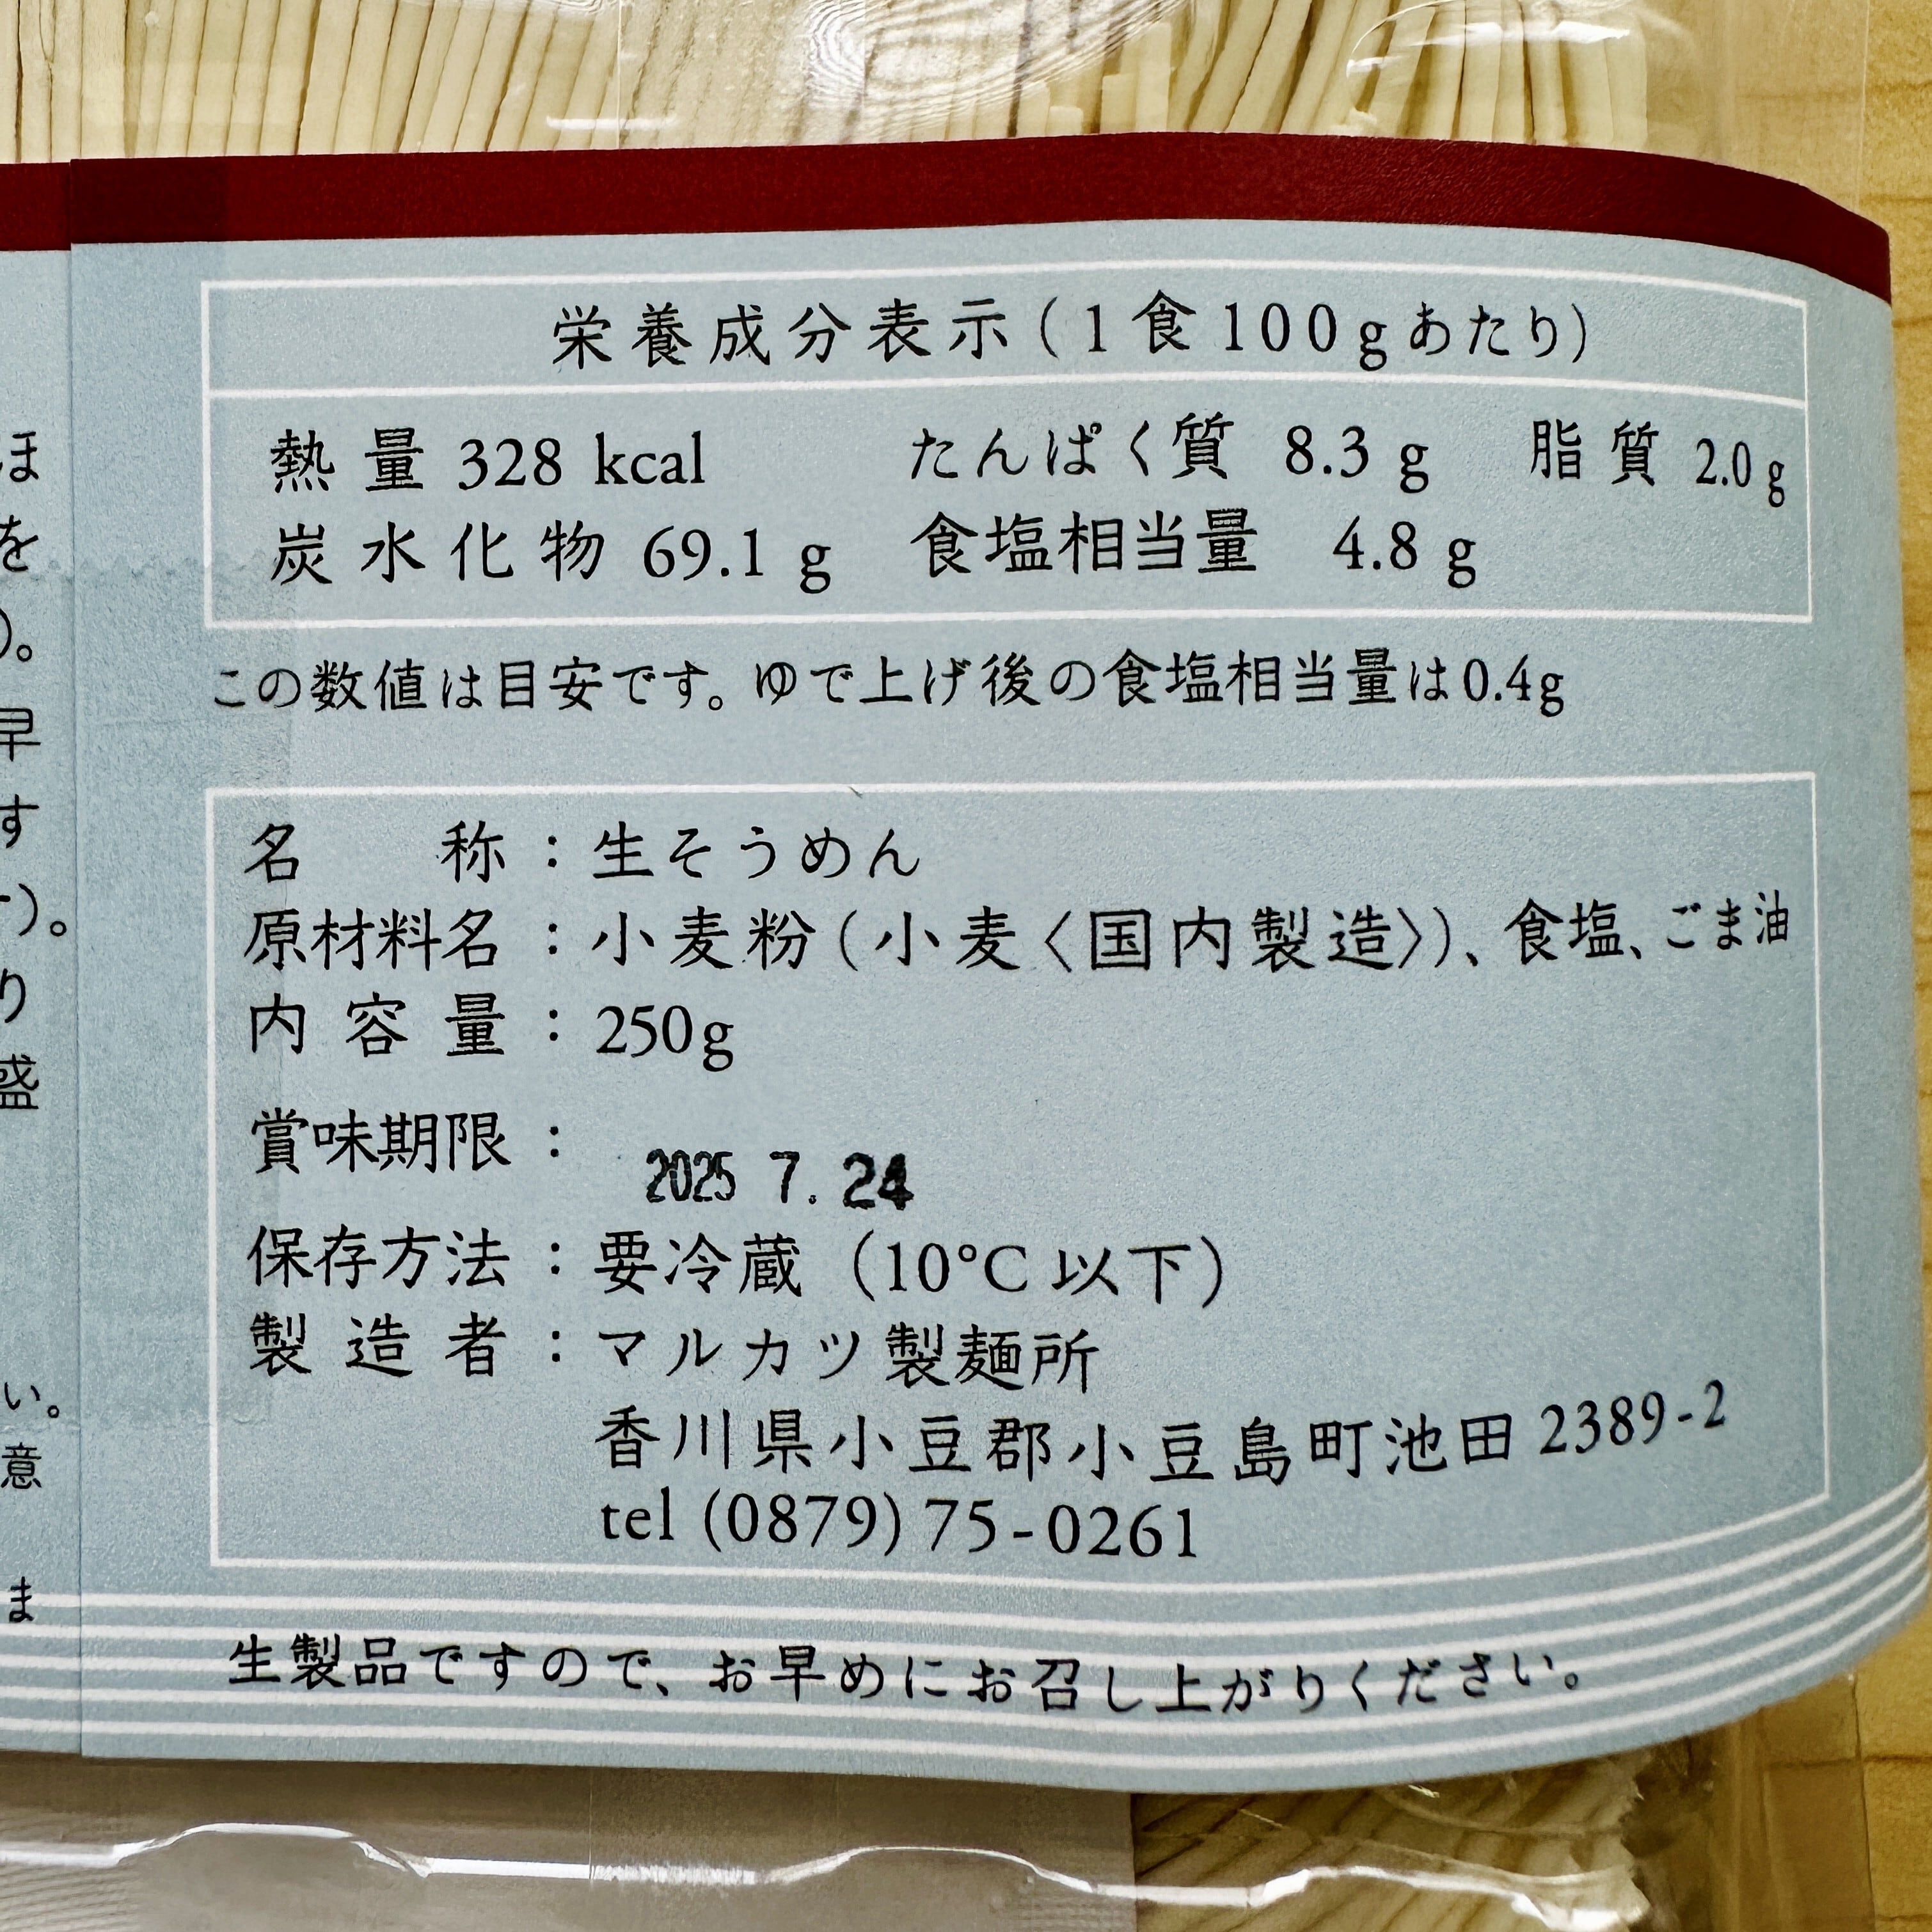 栄養成分表示(1食100gあたり)
熱量 328 kcal たんぱく質 8.3 g 脂質 2.0 g
炭水化物 69.1 g 食塩相当量 4.8 g
この数値は目安です。ゆで上げ後の食塩相当量は0.4g
名称：生そうめん
原材料名：小麦粉(小麦〈国内製造〉)、食塩、ごま油
内容量：250g
賞味期限：
2025 7. 24
保存方法：要冷蔵 (10℃以下)
製造者：マルカツ製麺所
香川県小豆郡小豆島町池田 2389-2
tel (0879) 75-0261
生製品ですので、お早めにお召し上がりください。
ほ
を
)。
早
す
)。
り
盛
い。
意
ま